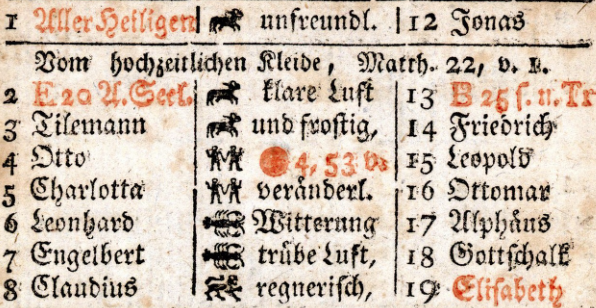 1 Aller Heiligen unfreundl. 12 Jonas
Vom hochzeitlichen Kleide, Matth. 22, v. 1.
2 E 20 A. Seel. klare Luft 13 B 25 s. n. Tr
3 Tilemann und frostig, 14 Friedrich
4 Otto 4, 53 v. 15 Leopold
5 Charlotta veränderl. 16 Ottomar
6 Leonhard Witterung 17 Alphäus
7 Engelbert trübe Luft, 18 Gottschalk
8 Claudius regnerisch, 19 Elisabeth